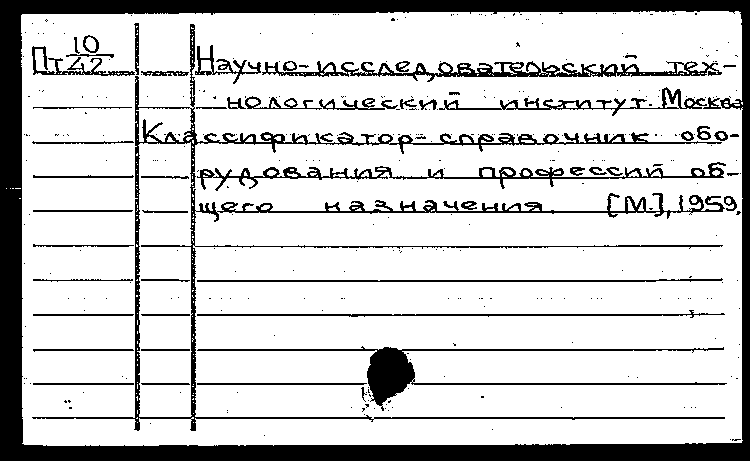 Пт 10/42
Научно-исследовательский тех-
нологический институт. Москва
Классификатор-справочник обо-
рудования и профессий об-
щего назначения. [М.], 1959.